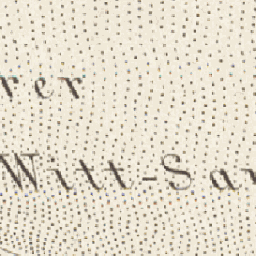 rer
Witt-Sar